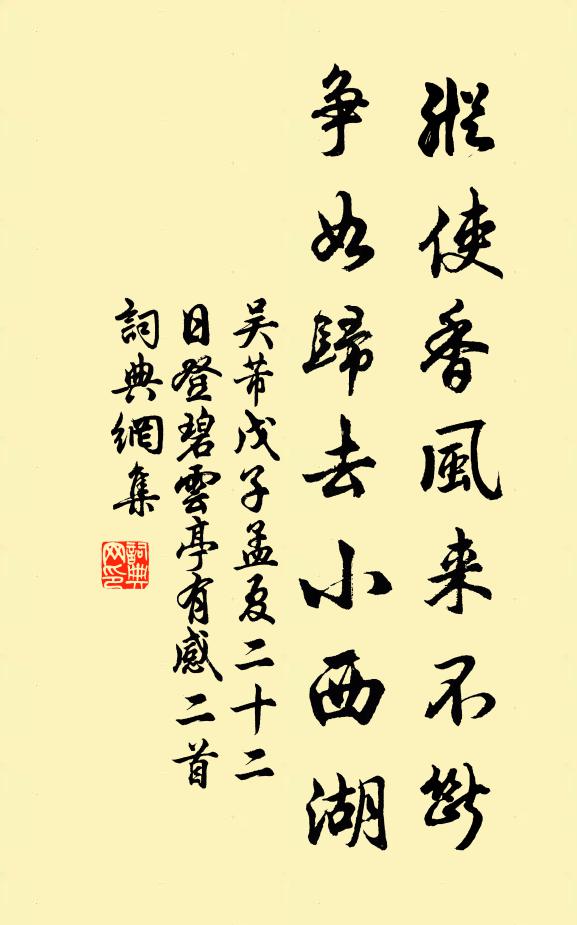 縱使香風来不斷
争如歸去小西湖
吴芾戊子孟夏二十二
日登碧雲亭有感二首
詞典網集
詞典网印